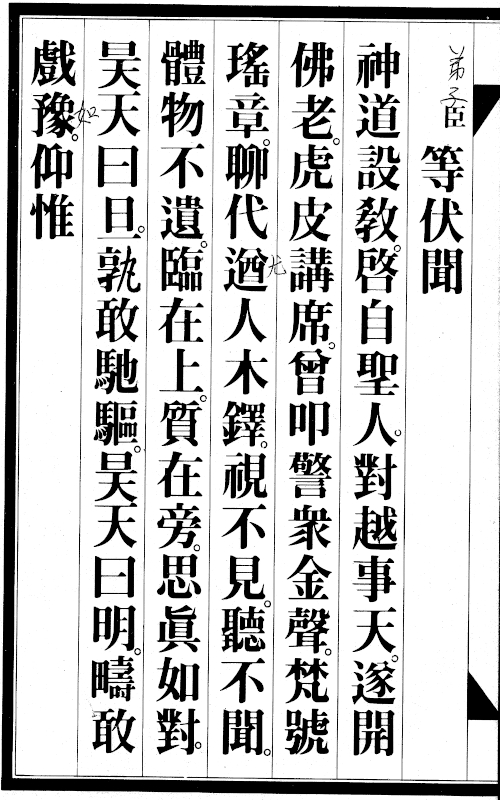 弟子臣 等伏聞
神道設教。啓自聖人。對越事天。遂開
佛老。虎皮講席。曾叩警衆金聲。梵號
瑤章。聊代遒人木鐸。視不見。聽不聞。
體物不遺。臨在上。質在旁。思眞如對。
昊天曰旦。孰敢馳驅。昊天曰明。疇敢
戲豫。仰惟